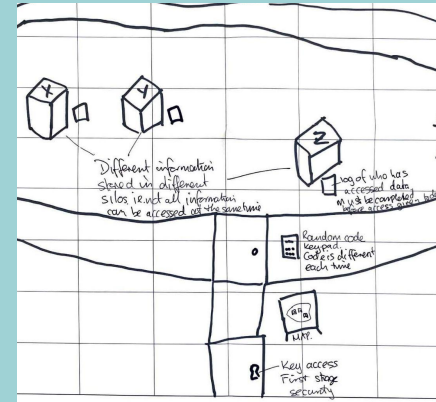 X
Y
Z
Different information
stored in different
silos, i.e. not all information
can be accessed at the same time
Log of who has
accessed data
Must be completed
before access given
Random code
keypad.
Code is different
each time
MAP.
Key access
First stage
security